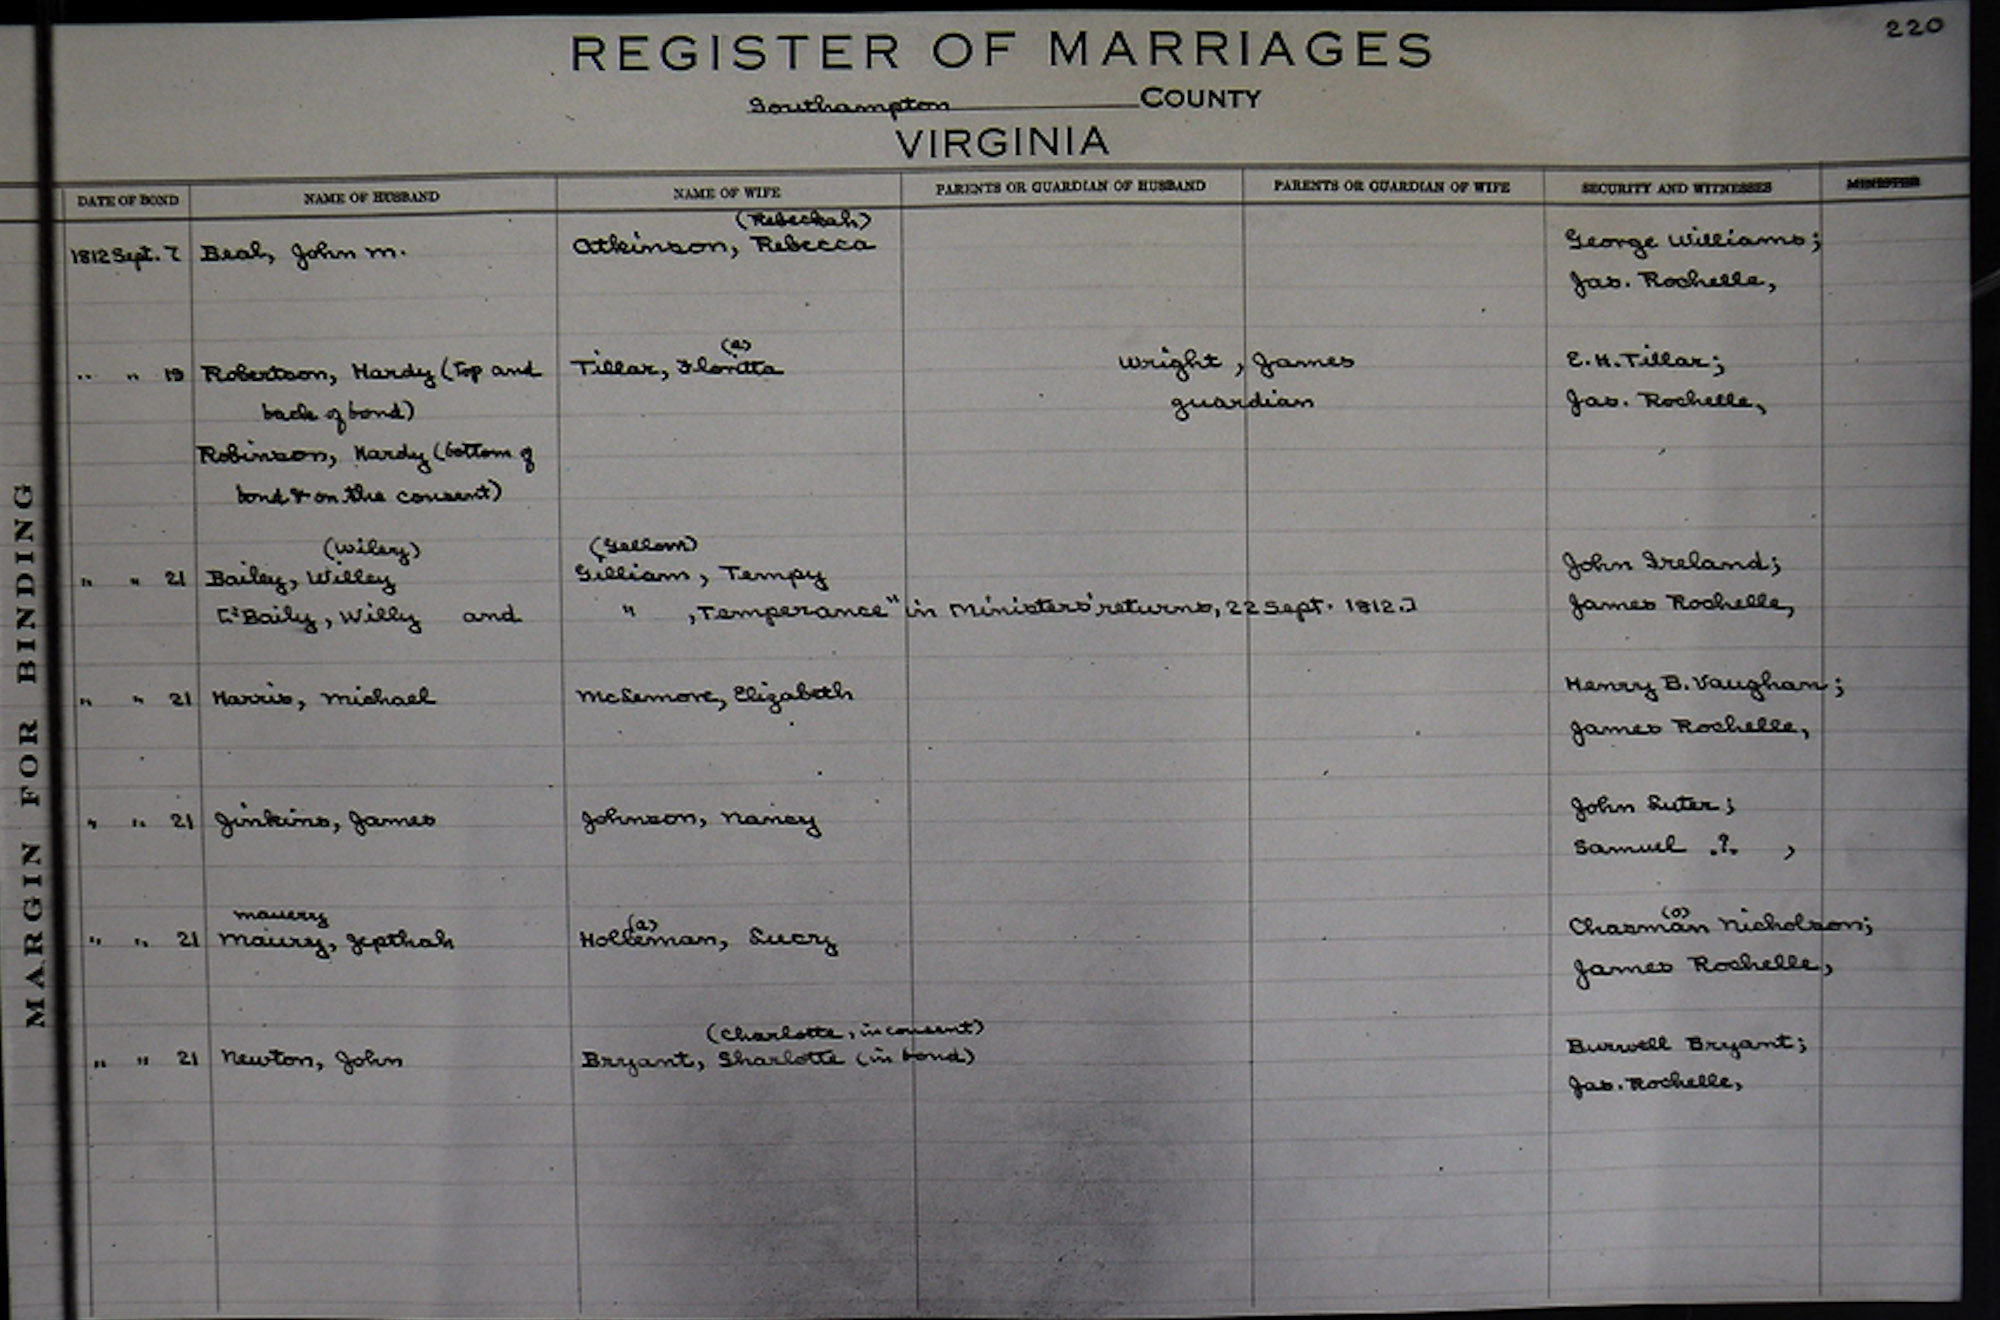 220
REGISTER OF MARRIAGES
Southampton COUNTY
VIRGINIA
MARGIN FOR BINDING
DATE OF BOND NAME OF HUSBAND NAME OF WIFE PARENTS OR GUARDIAN OF HUSBAND PARENTS OR GUARDIAN OF WIFE SECURITY AND WITNESSES MINISTER
(Rebeckah)
1812 Sept. 7 Beal, John M. Atkinson, Rebecca George Williams;
Jas. Rochelle,
(a)
" " 19 Robertson, Hardy (Top and Tillar, Floritta Wright, James E. H. Tillar;
back of bond) guardian Jas. Rochelle,
Robinson, Hardy (bottom of
bond & on the consent)
(Wiley) (Gellom)
" " 21 Bailey, Willey Gilliam, Tempy John Ireland;
["Baily, Willy and " , Temperance" in Ministers' returns, 22 Sept. 1812.] James Rochelle,
" " 21 Harris, Michael McLemore, Elizabeth Henry B. Vaughan;
James Rochelle,
" " 21 Jinkins, James Johnson, Nancy John Luter;
Samuel .?. ,
Mauery (a) (o)
" " 21 Maurey, Jepthah Holleman, Lucry Chasman Nicholson;
James Rochelle,
(Charlotte, in consent)
" " 21 Newton, John Bryant, Sharlotte (in bond) Burwell Bryant;
Jas. Rochelle,